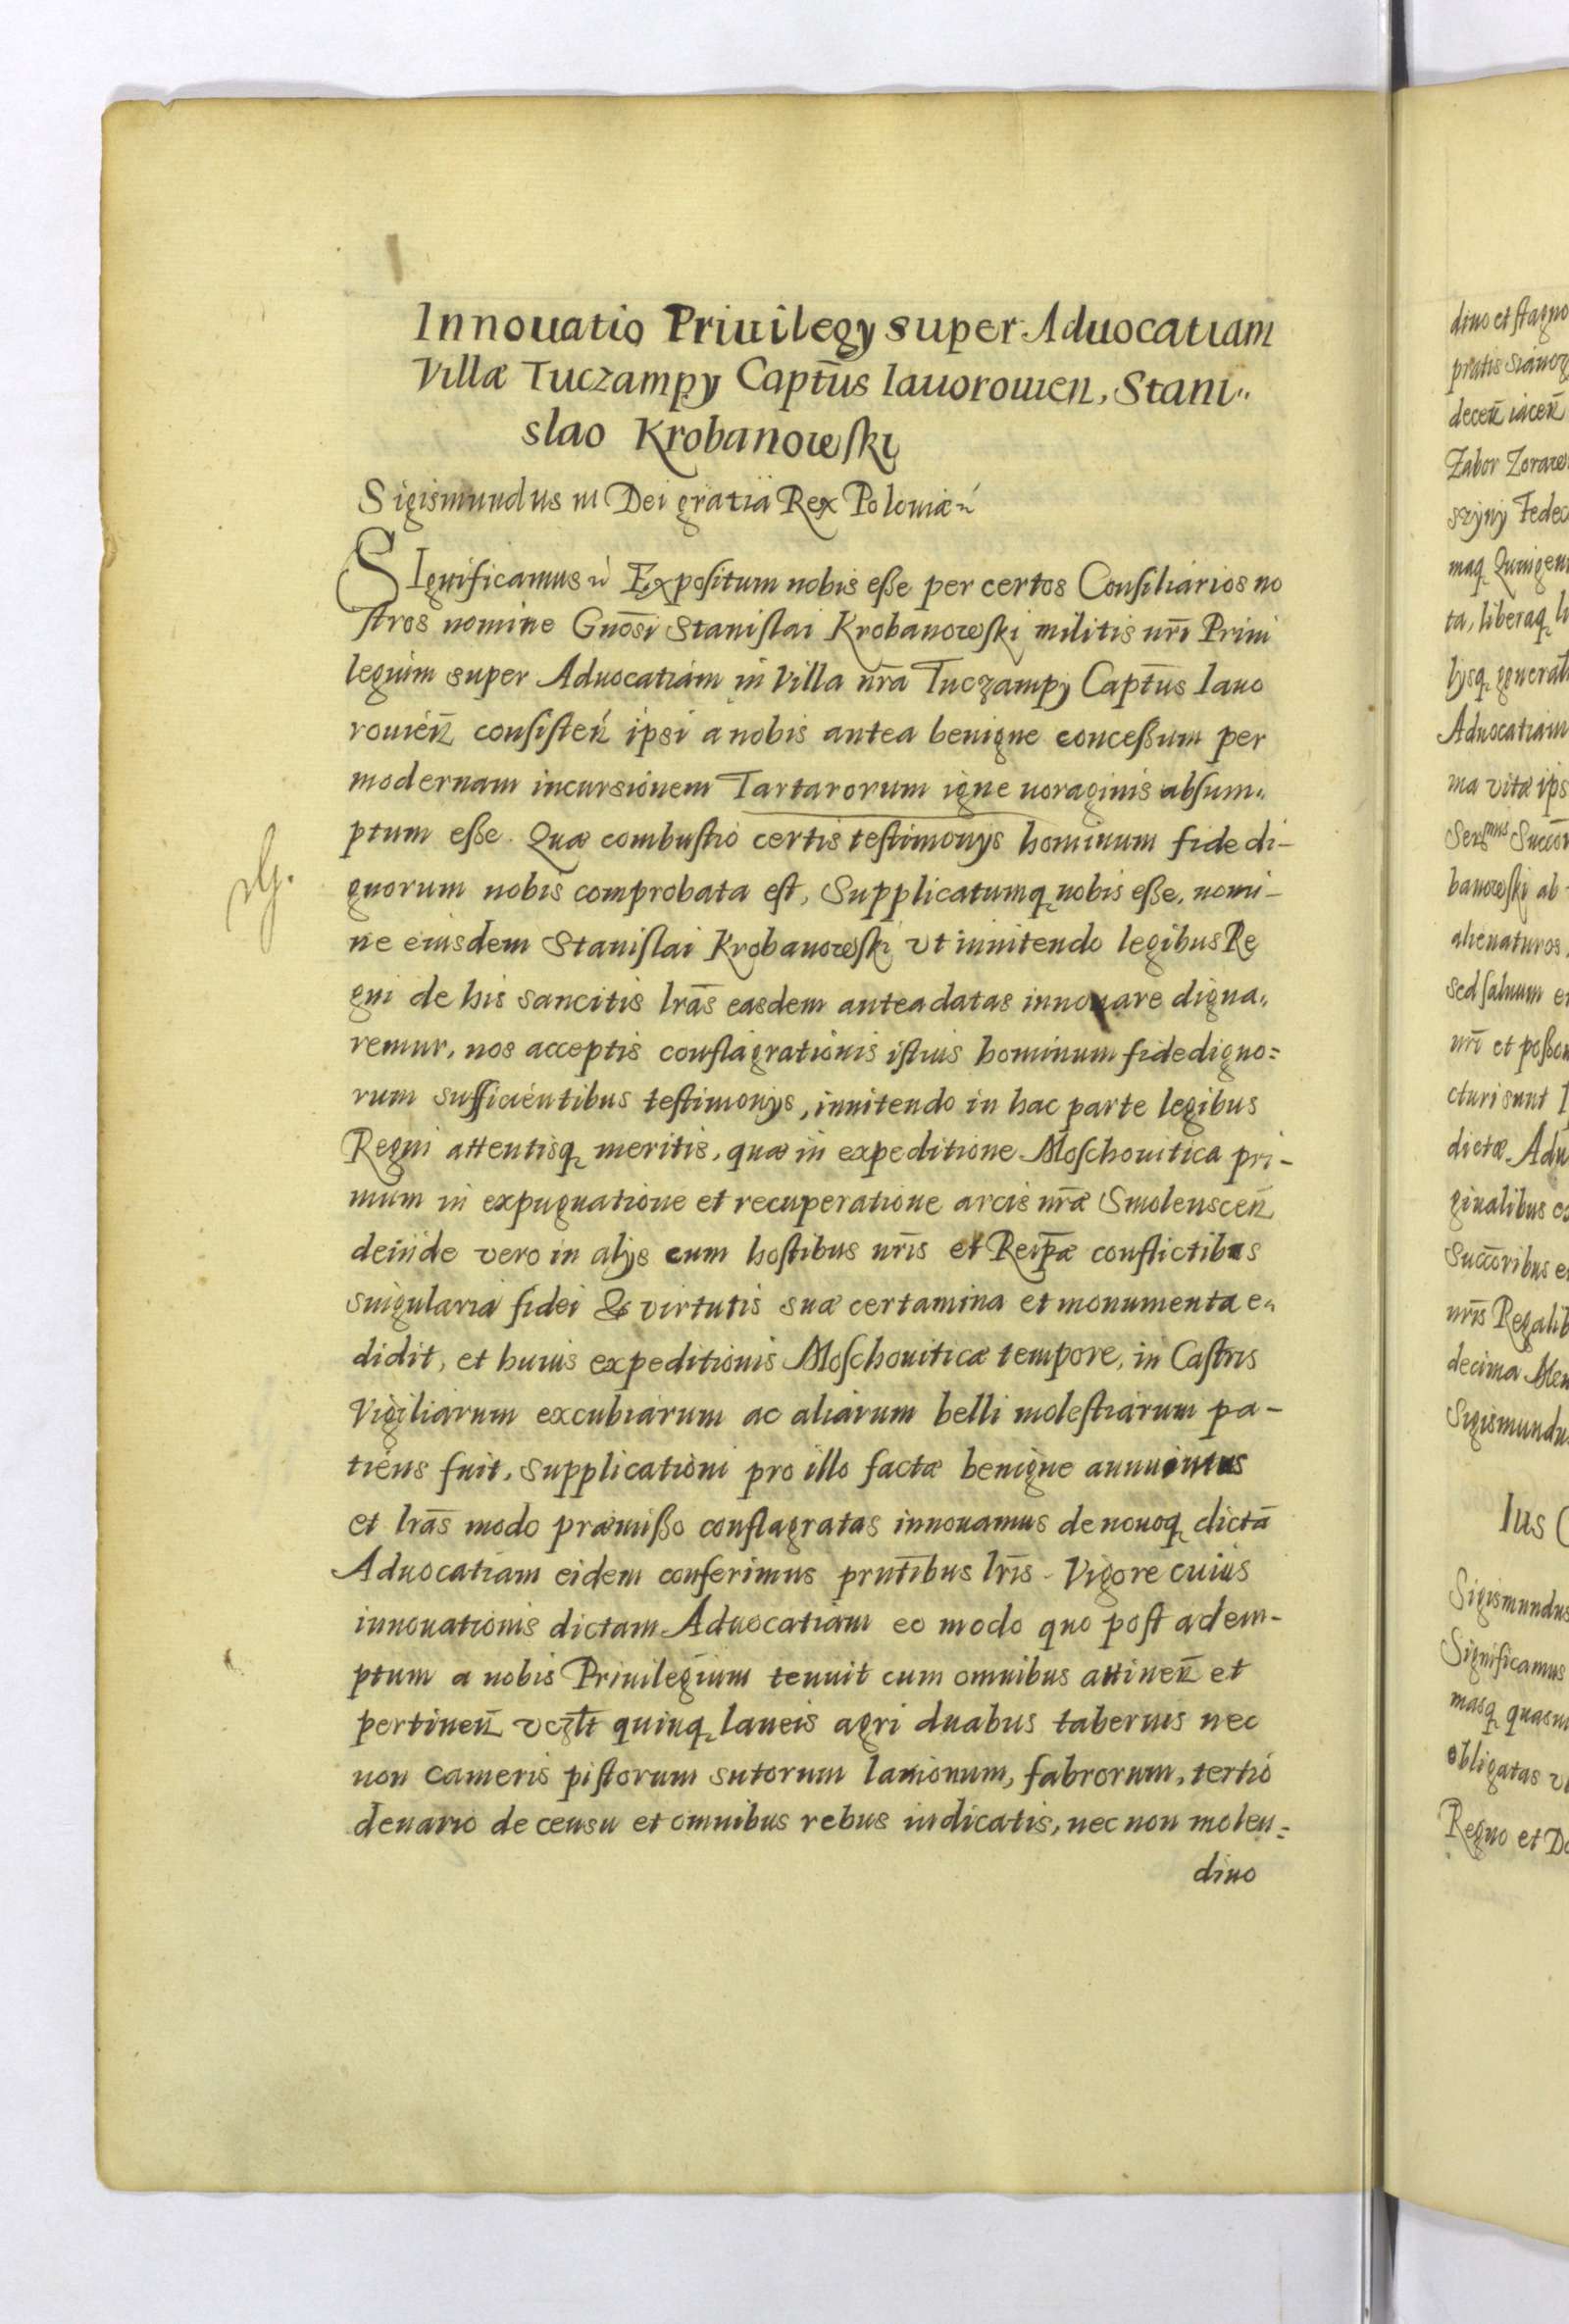 Innouatio Priuilegy super Aduocatiam
Villæ Tuczampy Capt̄us Iauorouien, Stani„
slao Krobanowſki
Sigismundus III Dei gratia Rex Poloniæ
SIgnificamus Expoſitum nobis eße per certos Conſiliarios no
ſtros nomine Gnōsi Staniſlai Krobanowſki militis nr̄i Priui
legium super Aduocatiam in Villa nr̄a Tuczampy Capt̄us Iauo
rouien̄ conſiſten̄ ipsi a nobis antea benigne conceßum per
modernam incursionem Tartarorum igne uoraginis abſum„
ptum eße. Quæ combuſtio certis teſtimonys hominum fide di-
gnorum nobis comprobata eſt, Supplicatumq nobis eße, nomi-
ne eiusdem Staniſlai Krobanowſki vt innitendo legibus Re
gni de his sancitis lrā̄s easdem antea datas innouare digna„
remur, nos acceptis conflagrationis iſtius hominum fidedigno=
rum sufficientibus teſtimonys, innitendo in hac parte legibus
Regni attentisq meritis, quæ in expeditione Moſchouitica pri-
mum in expugnatione et recuperatione arcis nr̄æ Smolenscen̄
deinde vero in alys cum hoſtibus nr̄is et Reip̄æ conflictibus
singularia fidei & virtutis suæ certamina et monumenta e„
didit, et huius expeditionis Moſchouiticæ tempore, in Caſtris
Vigiliarum excubiarum ac aliarum belli moleſtiarum pa-
tiens fuit, Supplicationi pro illo factæ benigne annuentes
et lrās modo præmißo conflagratas innouamus denouoq dictā
Aduocatiam eidem conferimus prnt̄ibus lr̄is. Vigore cuius
innouationis dictam Aduocatiam eo modo quo poſt adem-
ptum a nobis Priuilegium tenuit cum omnibus attinen̄ et
pertinen̄ vczl̄t quinq laneis agri duabus tabernis nec
non cameris piſtorum sutorum lanionum, fabrorum, tertio
denario de censu et omnibus rebus iudicatis, nec non molen=
dino
dino et ſtagno
pratis
decen̄ iacen̄
Zabor
Fedec
maq Quingen
ta, liberaq li
lysq general
Aduocatiam
ma vitæ ips
Serᵐᵘˢ Succōr
banowſki ab
alienaturos
sed ſaluum e
nr̄i et poßon
cturi sunt I
dictæ Adu
ginalibus
Succōribus e
nr̄is Regalib
decima Men
Sigismundu
Ius
Sigismundus
Significamus
masq quasu
obligatas v
Regno et Do